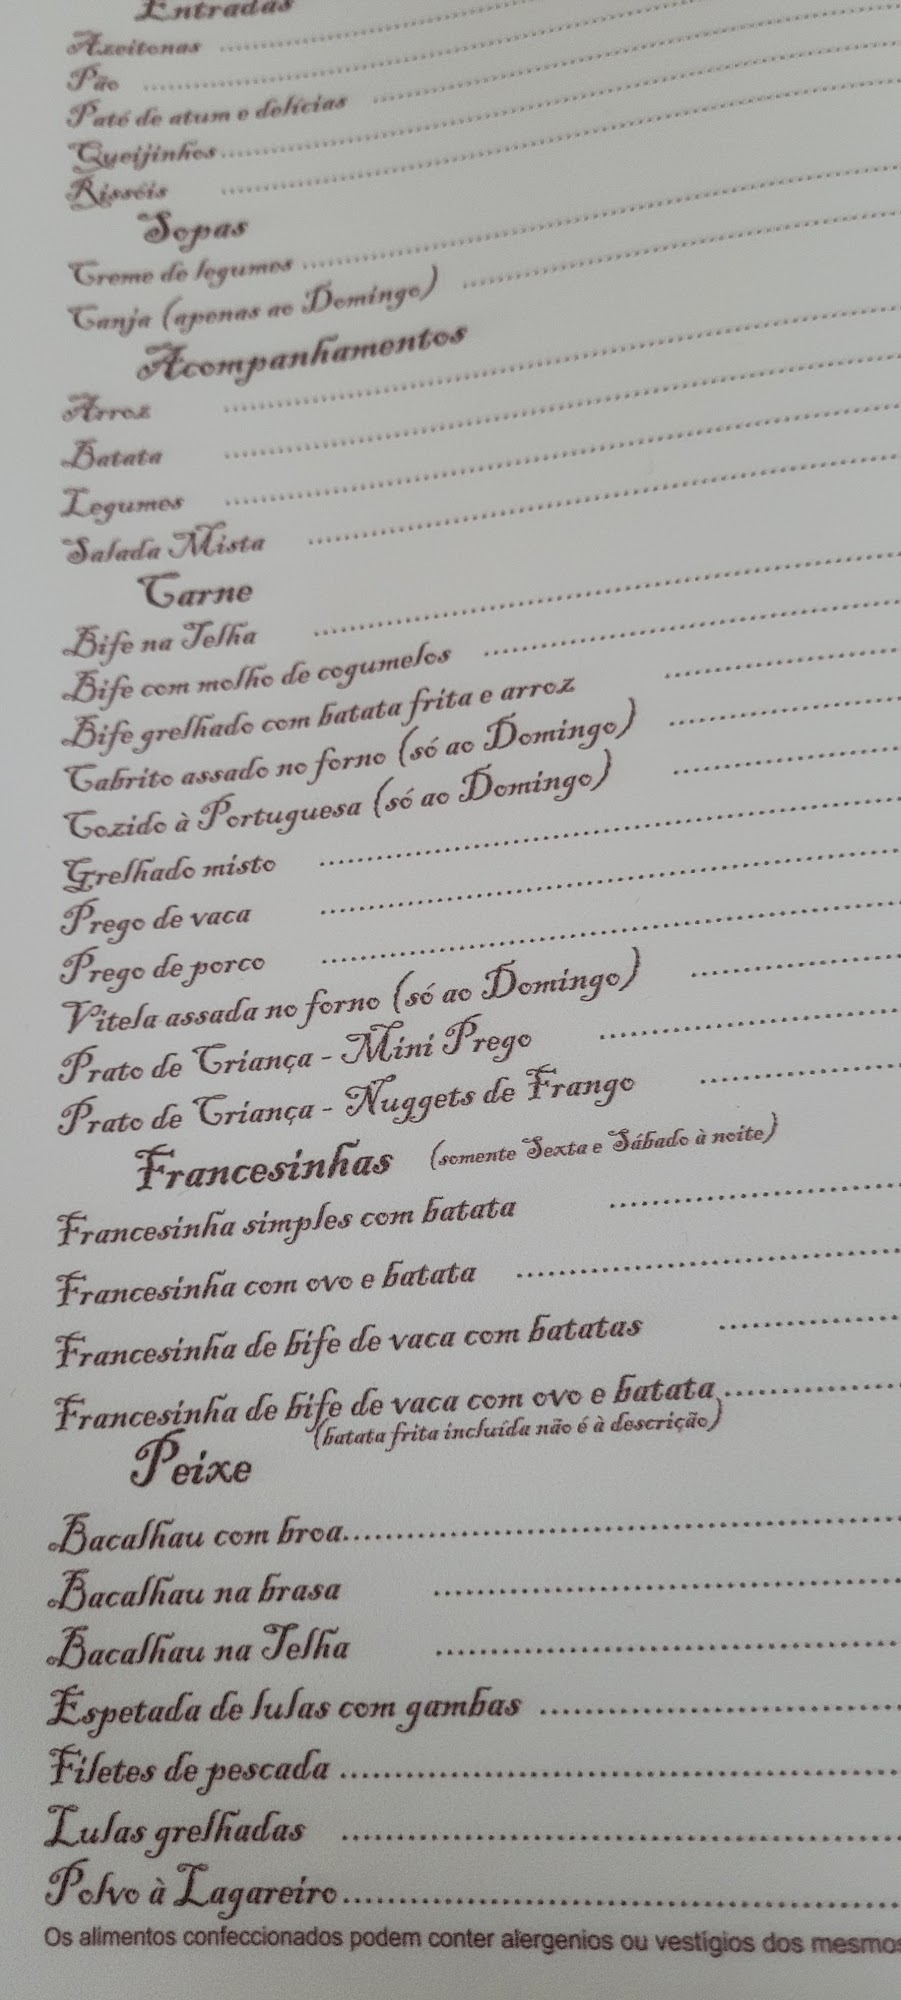 Entradas
Azeitonas
Pão
Paté de atum e delícias
Queijinhos
Rissóis
Sopas
Creme de legumes
Canja (apenas ao Domingo)
Acompanhamentos
Arroz
Batata
Legumes
Salada Mista
Carne
Bife na Telha
Bife com molho de cogumelos
Bife grelhado com batata frita e arroz
Cabrito assado no forno (só ao Domingo)
Cozido à Portuguesa (só ao Domingo)
Grelhado misto
Prego de vaca
Prego de porco
Vitela assada no forno (só ao Domingo)
Prato de Criança - Mini Prego
Prato de Criança - Nuggets de Frango
Francesinhas (somente Sexta e Sábado à noite)
Francesinha simples com batata
Francesinha com ovo e batata
Francesinha de bife de vaca com batatas
Francesinha de bife de vaca com ovo e batata
(batata frita incluída não é à descrição)
Peixe
Bacalhau com broa
Bacalhau na brasa
Bacalhau na Telha
Espetada de lulas com gambas
Filetes de pescada
Lulas grelhadas
Polvo à Lagareiro
Os alimentos confeccionados podem conter alergenios ou vestígios dos mesmos